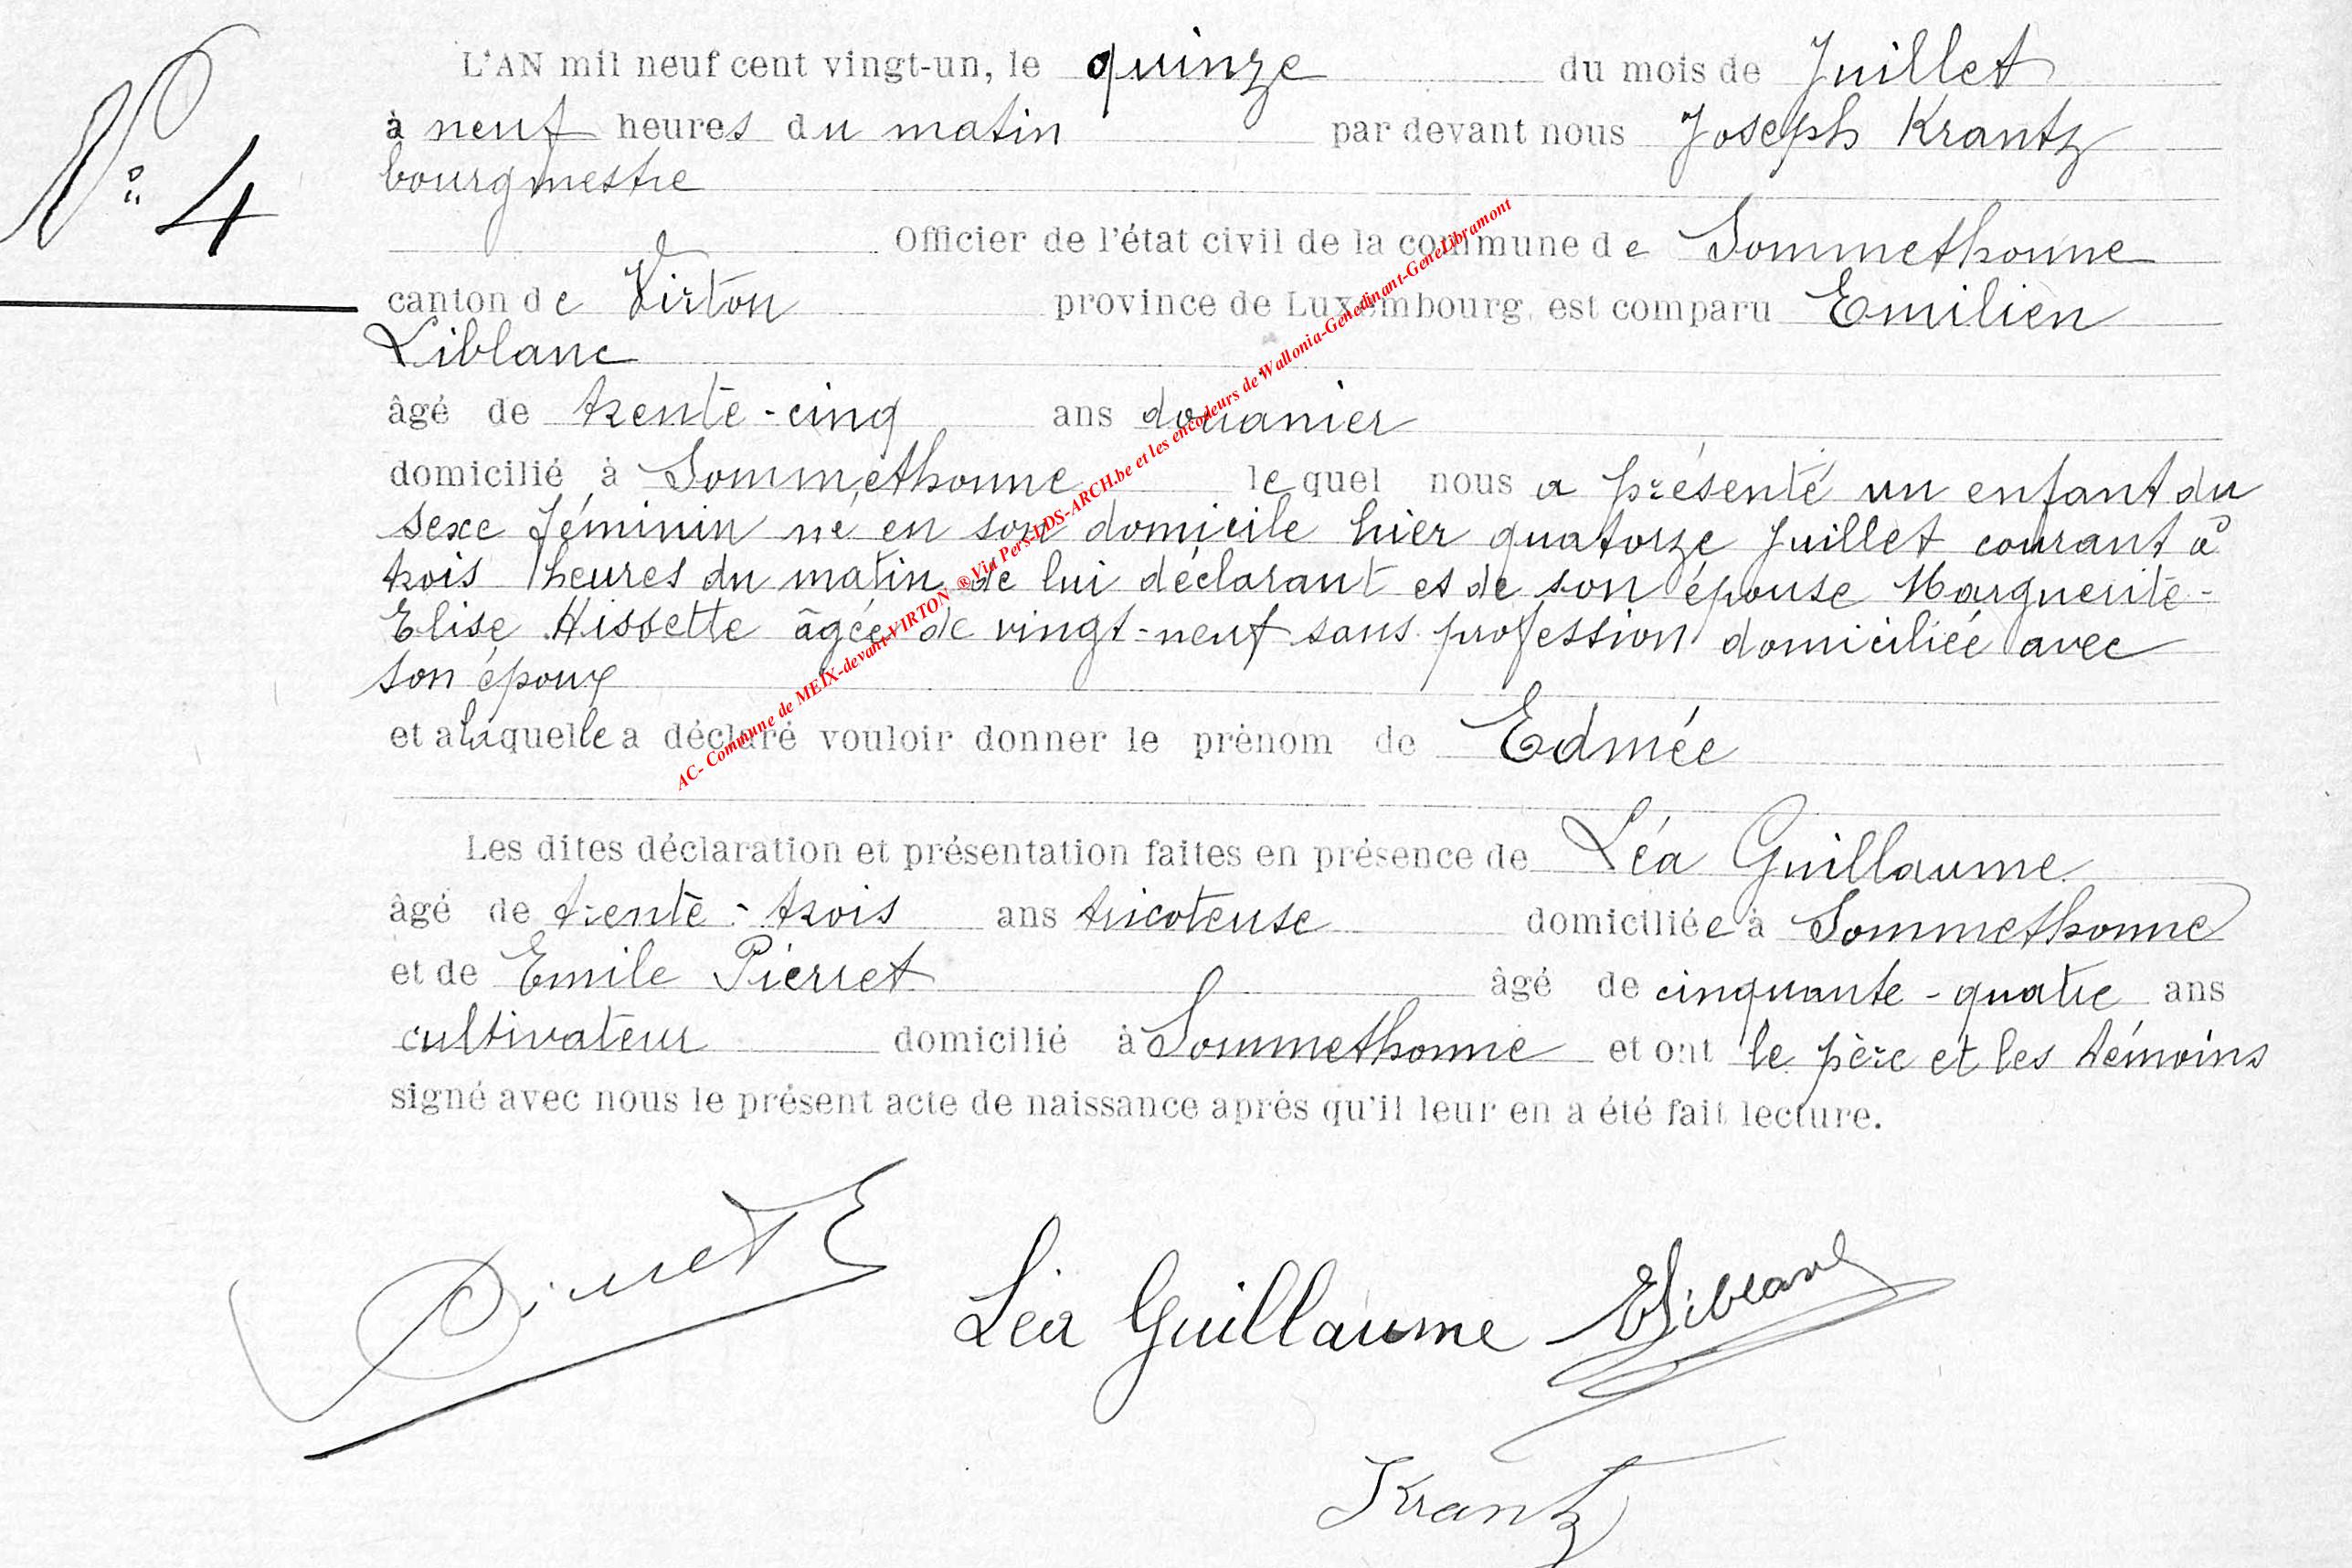 N° 4
L'AN mil neuf cent vingt-un, le quinze du mois de Juillet
à neuf heures du matin par devant nous Joseph Krantz
bourgmestre
Officier de l'état civil de la commune de Sommethonne
canton de Virton province de Luxembourg, est comparu Emilien
Liblanc
âgé de trente-cinq ans douanier
domicilié à Sommethonne lequel nous a présenté un enfant du
sexe féminin né en son domicile hier quatorze Juillet courant à
trois heures du matin, de lui déclarant et de son épouse Marguerite-
Elise Hissette âgée de vingt-neuf sans profession domiciliée avec
son époux
et alaquelle a déclaré vouloir donner le prénom de Edmée
Les dites déclaration et présentation faites en présence de Léa Guillaume
âgé de trente-trois ans tricoteuse domiciliée à Sommethonne
et de Emile Pierret âgé de cinquante-quatre ans
cultivateur domicilié à Sommethonne et ont le père et les témoins
signé avec nous le présent acte de naissance après qu'il leur en a été fait lecture.
Pierret E
Léa Guillaume
E Liblanc
Krantz
AC- Commune de MEIX-devant-VIRTON ® Via Pers-LDS-ARCH.be et les encodeurs de Wallonia-Genedinant-GeneLibramont